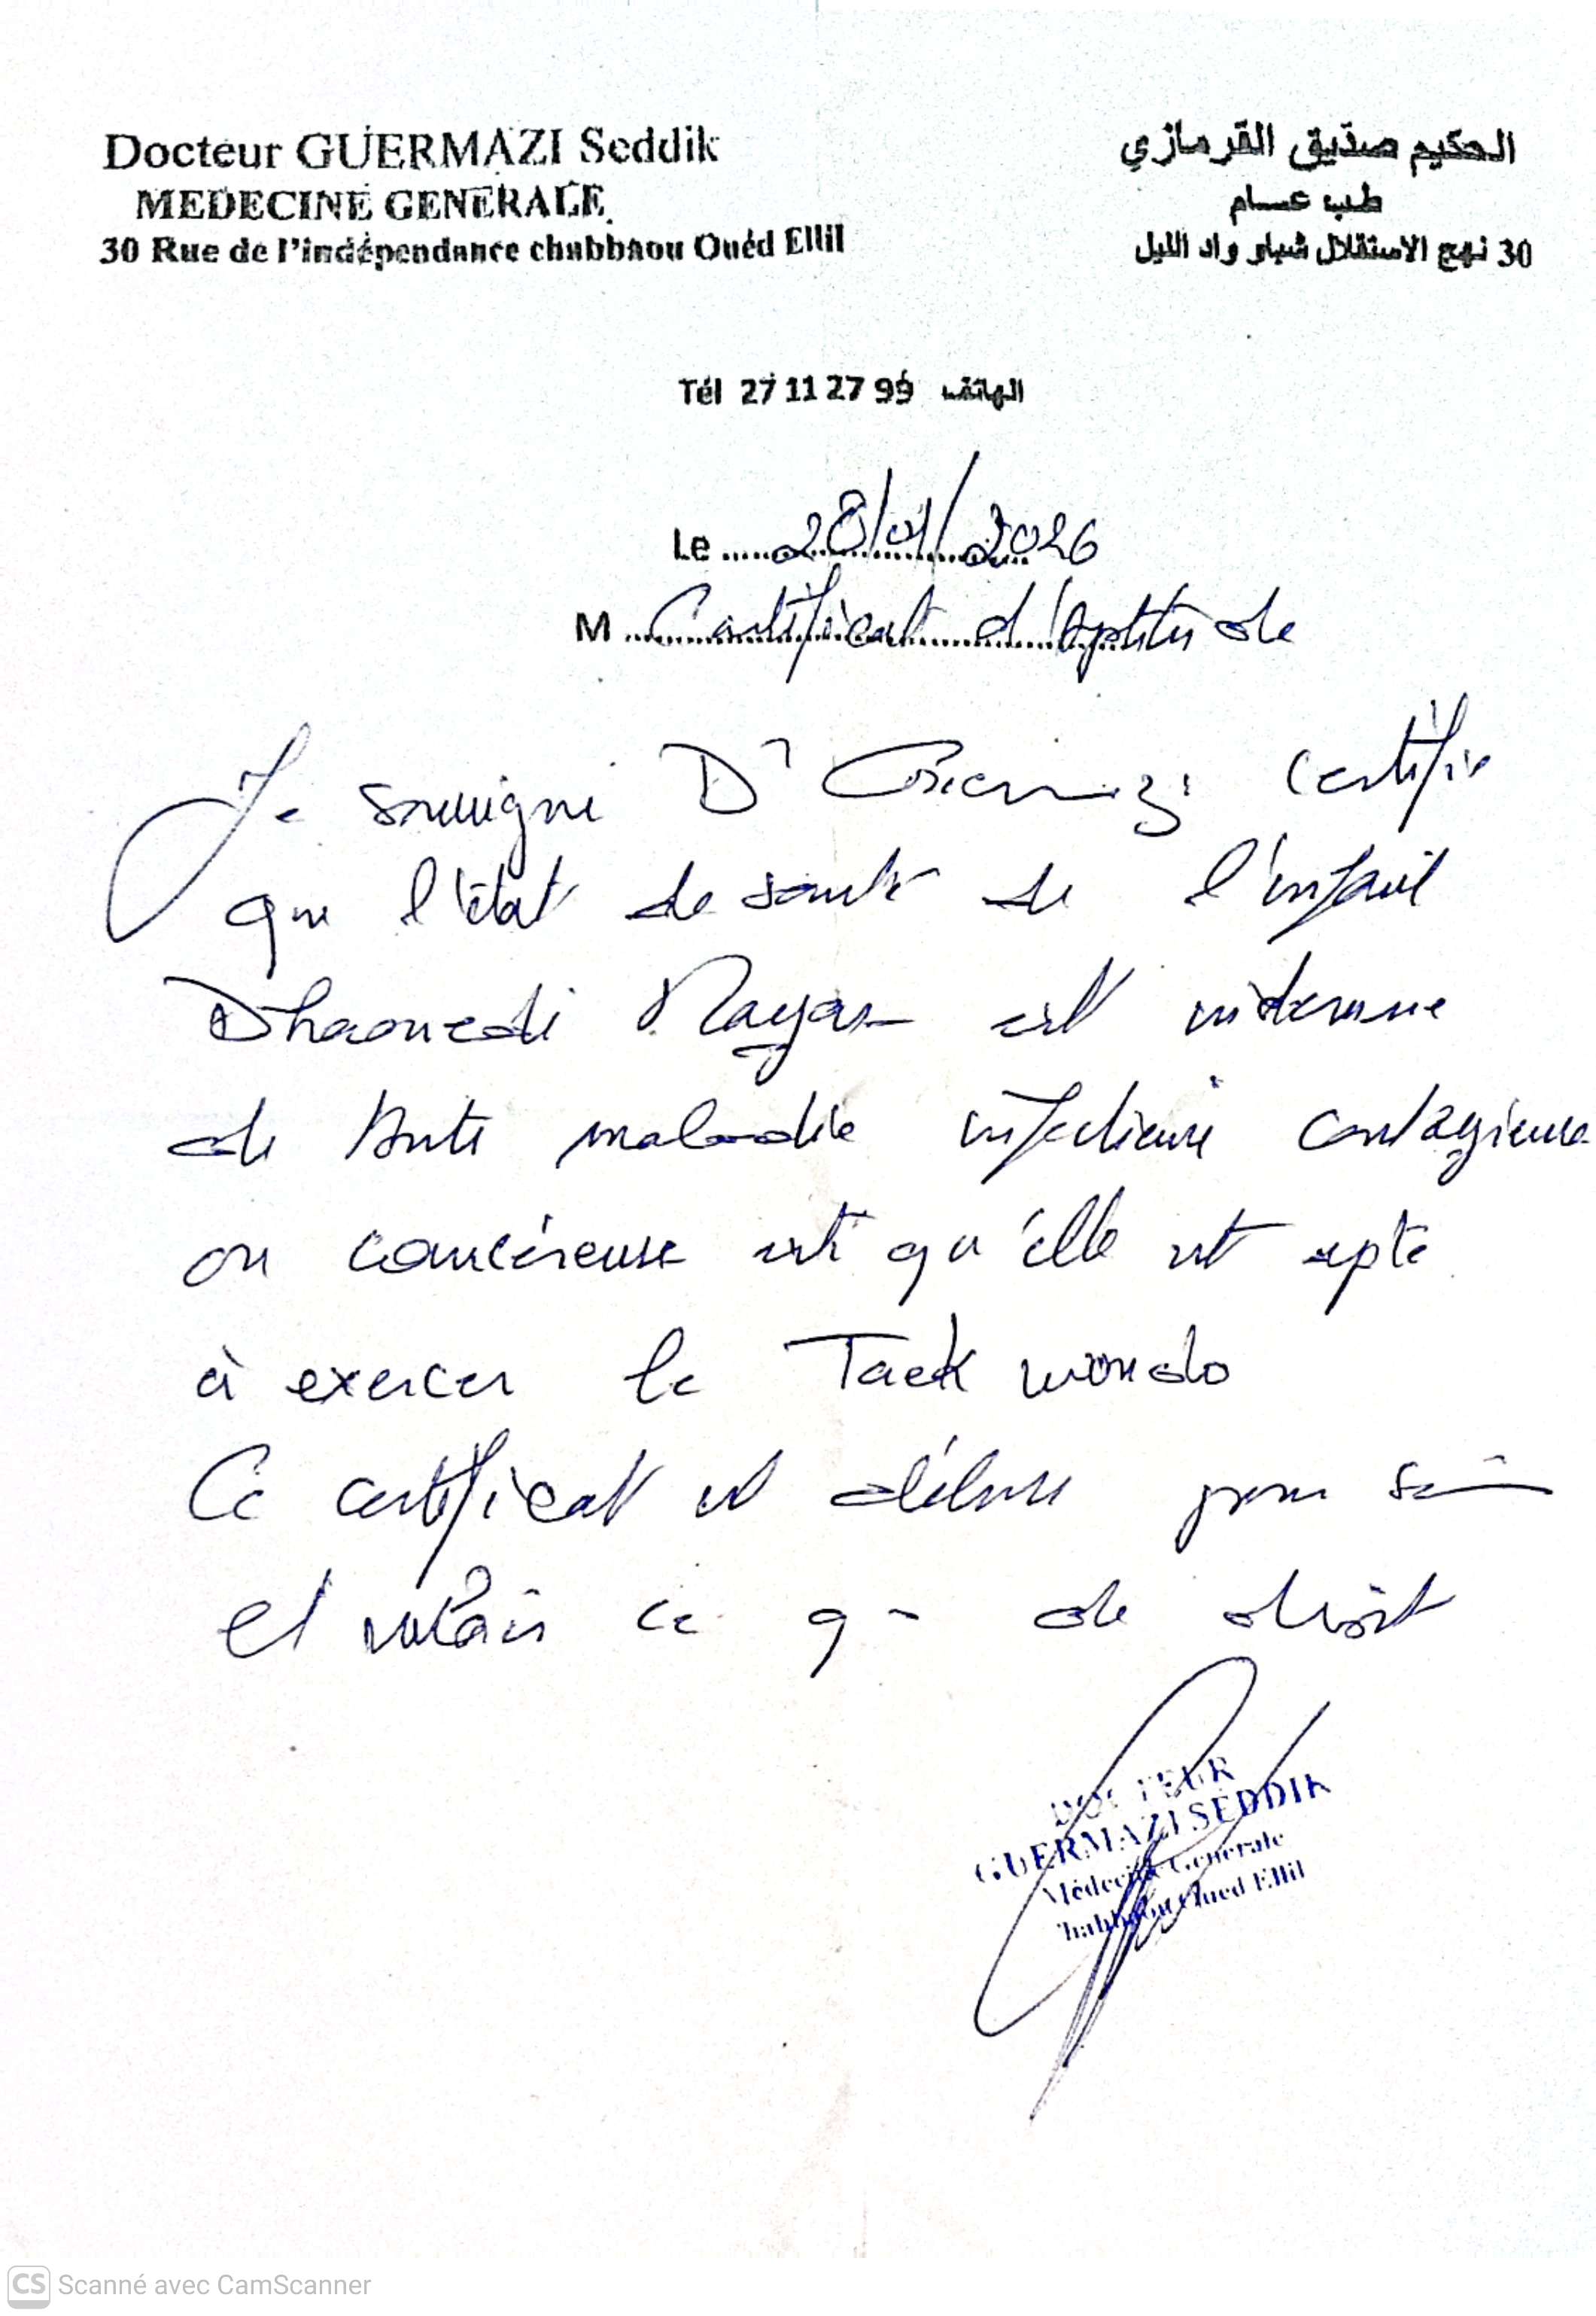 Docteur GUERMAZI Seddik
MEDECINE GENERALE
30 Rue de l'indépendance chabbaou Ouéd Ellil
الحكيم صديق القرمازي
طب عام
30 نهج الاستقلال شباو واد الليل
Tél 27 11 27 99 الهاتف
Le 28/01/2026
M Certificat d'aptitude
Je soussigné Dr Guermazi certifie
que l'état de santé de l'enfant
Dhaouedi est indemne
de toute maladie infectieuse contagieuse
ou cancéreuse et qu'elle est apte
à exercer le Taekwondo
Ce certificat est délivré pour
et valoir ce que de droit
DOCTEUR
GUERMAZI SEDDIK
Médecine Generale
Chabbaou Oued Ellil
CS Scanné avec CamScanner